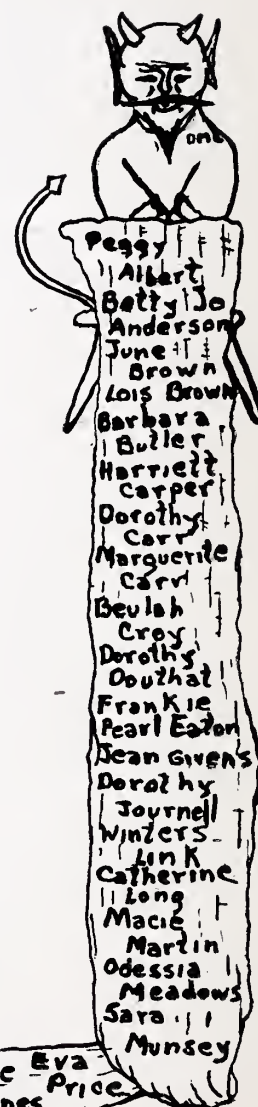 DMC
Peggy
Albert
Betty Jo
Anderson
June
Brown
Lois Brown
Barbara
Butler
Harriett
Carper
Dorothy
Carr
Marguerite
Carr
Beulah
Croy
Dorothy
Douthat
Frankie
Pearl Eaton
Jean Givens
Dorothy
Journell
Winters
Link
Catherine
Long
Macie
Martin
Odessia
Meadows
Sara
Munsey
Eva
Price